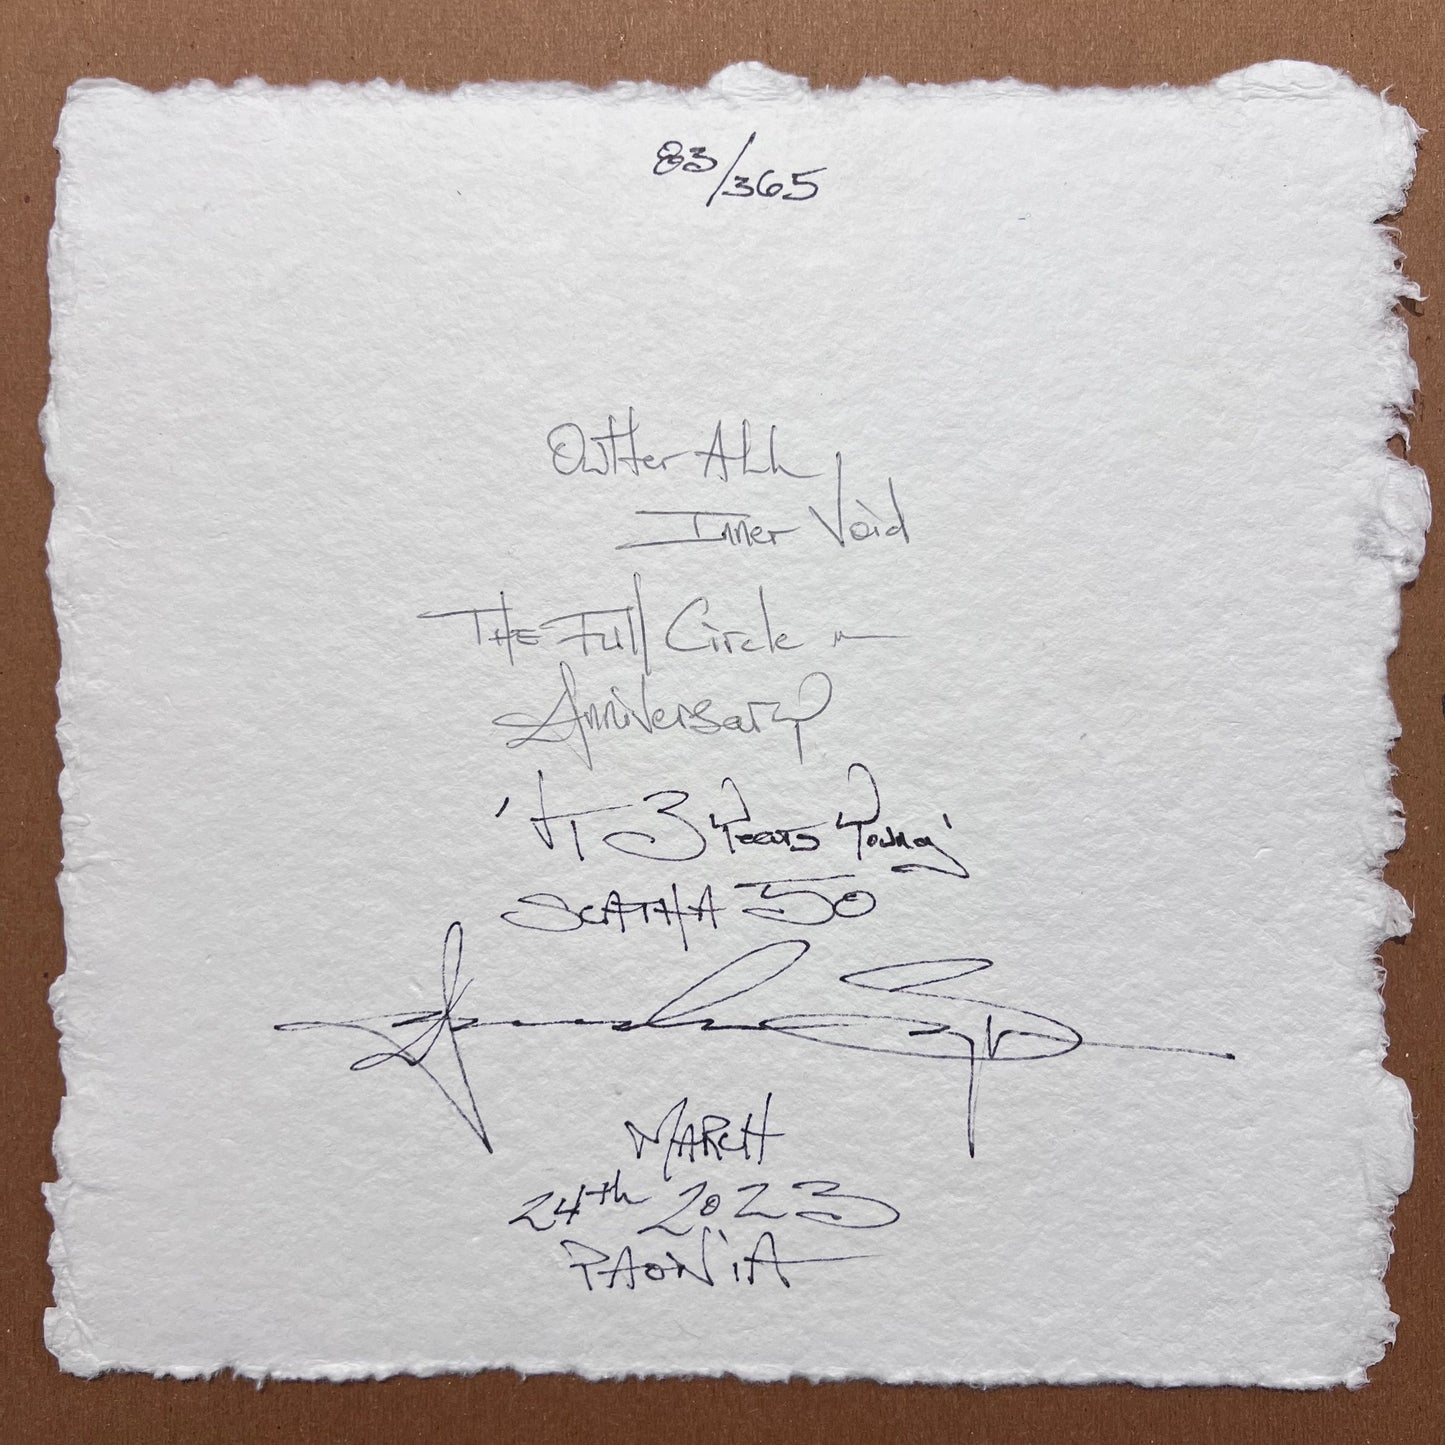 83/365
Outter All
Inner Void
The Full Circle
Anniversary
3 Years Young'
SCATHA 50
MARCH
24th 2023
PAONiA